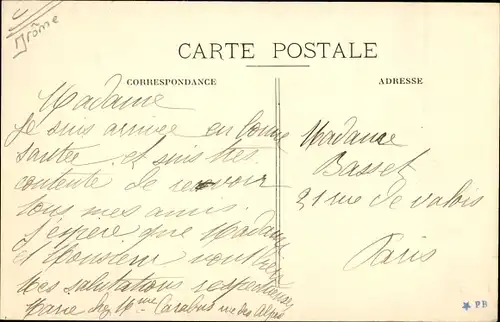 Drôme
CARTE POSTALE
CORRESPONDANCE
ADRESSE
Madame
Je suis arrivée en bonne
santée et suis très
contente de revoir
tous mes amis.
J'espère que Madame
et Monsieur vont bien
Mes salutations respectueuses
Marie chez Mme Carabus rue des Alpes
Madame
Basset
21 rue de valois
Paris
PB